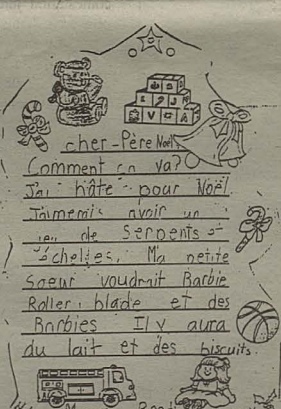 cher Père Noël
Comment ça va?
J'ai hâte pour Noël.
J'aimerais avoir un
jeu de Serpents et
échelles. Ma petite
Soeur voudrait Barbie
Roller blade et des
Barbies Il y aura
du lait et des biscuits.